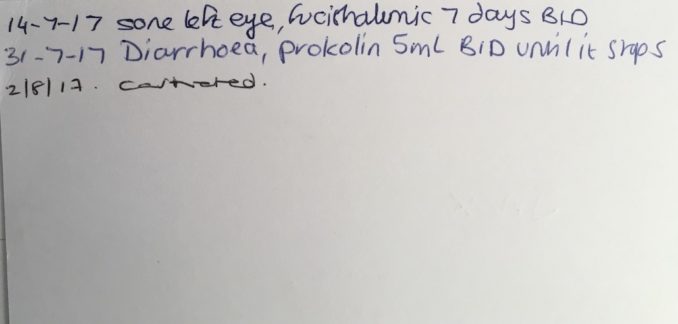 14-7-17 sore left eye, Fucithalmic 7 days BID
31-7-17 Diarrhoea, prokolin 5mL BID until it stops
2/8/17. castrated.